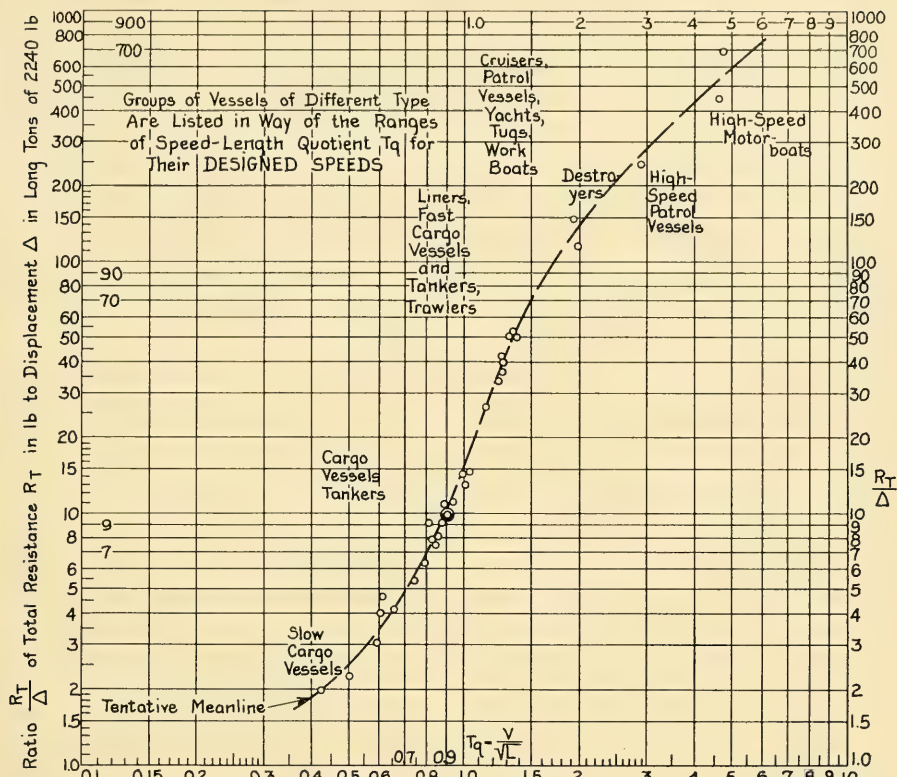 Ratio RT/Δ of Total Resistance RT in lb to Displacement Δ in Long Tons of 2240 lb
1000 900 1.0 2 3 4 5 6 7 8 9 1000
800 700 800
700
600 600
500 500
400 400
300 300
200 200
150 150
100 100
90 90
80 80
70 70
60 60
50 50
40 40
30 30
20 20
15 15
10 10
9 9
8 8
7 7
6 6
5 5
4 4
3 3
2 2
1.5 1.5
1.0 1.0
Groups of Vessels of Different Type
Are Listed in Way of the Ranges
of Speed-Length Quotient Tq for
Their DESIGNED SPEEDS
Cruisers,
Patrol
Vessels,
Yachts,
Tugs,
Work
Boats
High-Speed
Motor-
boats
Destro-
yers
High-
Speed
Patrol
Vessels
Liners,
Fast
Cargo
Vessels
and
Tankers,
Trawlers
Cargo
Vessels
Tankers
RT/Δ
Slow
Cargo
Vessels
Tentative Meanline
Tq = V/√L
0.7 0.9
0.1 0.15 0.2 0.3 0.4 0.5 0.6 0.8 1.0 1.5 2 3 4 5 6 7 8 9 10